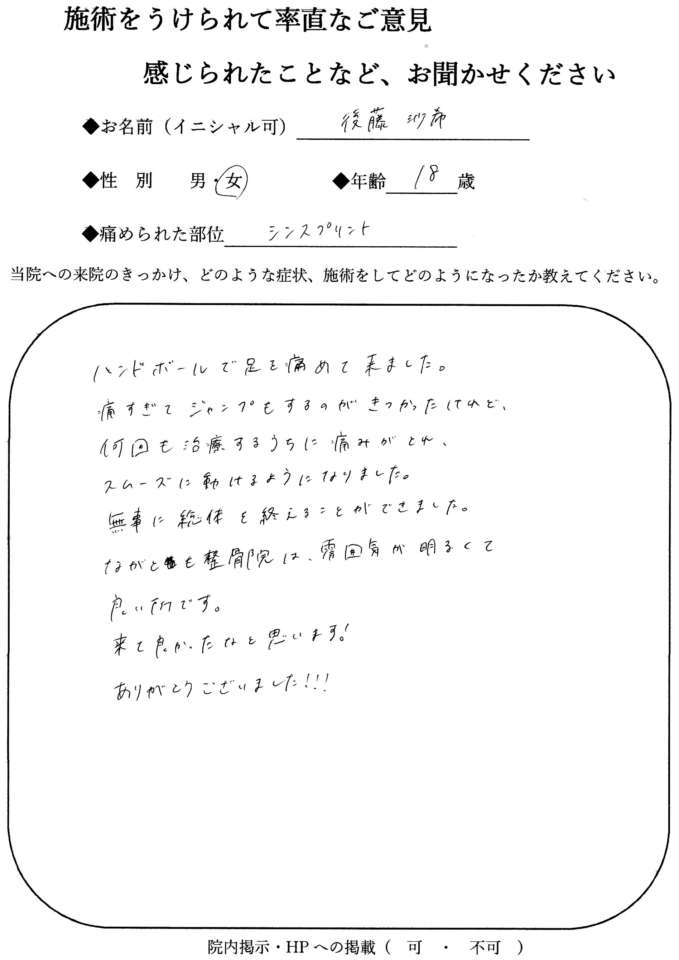 施術をうけられて率直なご意見
感じられたことなど、お聞かせください
◆お名前（イニシャル可） 後藤 沙希
◆性 別 男・女 ◆年齢 18 歳
◆痛められた部位 シンスプリント
当院への来院のきっかけ、どのような症状、施術をしてどのようになったか教えてください。
ハンドボールで足を痛めて来ました。
痛すぎてジャンプもするのがきつかったけれど、
何回も治療するうちに痛みがとれ、
スムーズに動けるようになりました。
無事に総体を終えることができました。
ながとも整骨院は、雰囲気が明るくて
良い所です。
来て良かったなと思います!
ありがとうございました!!!
院内掲示・HPへの掲載（ 可 ・ 不可 ）